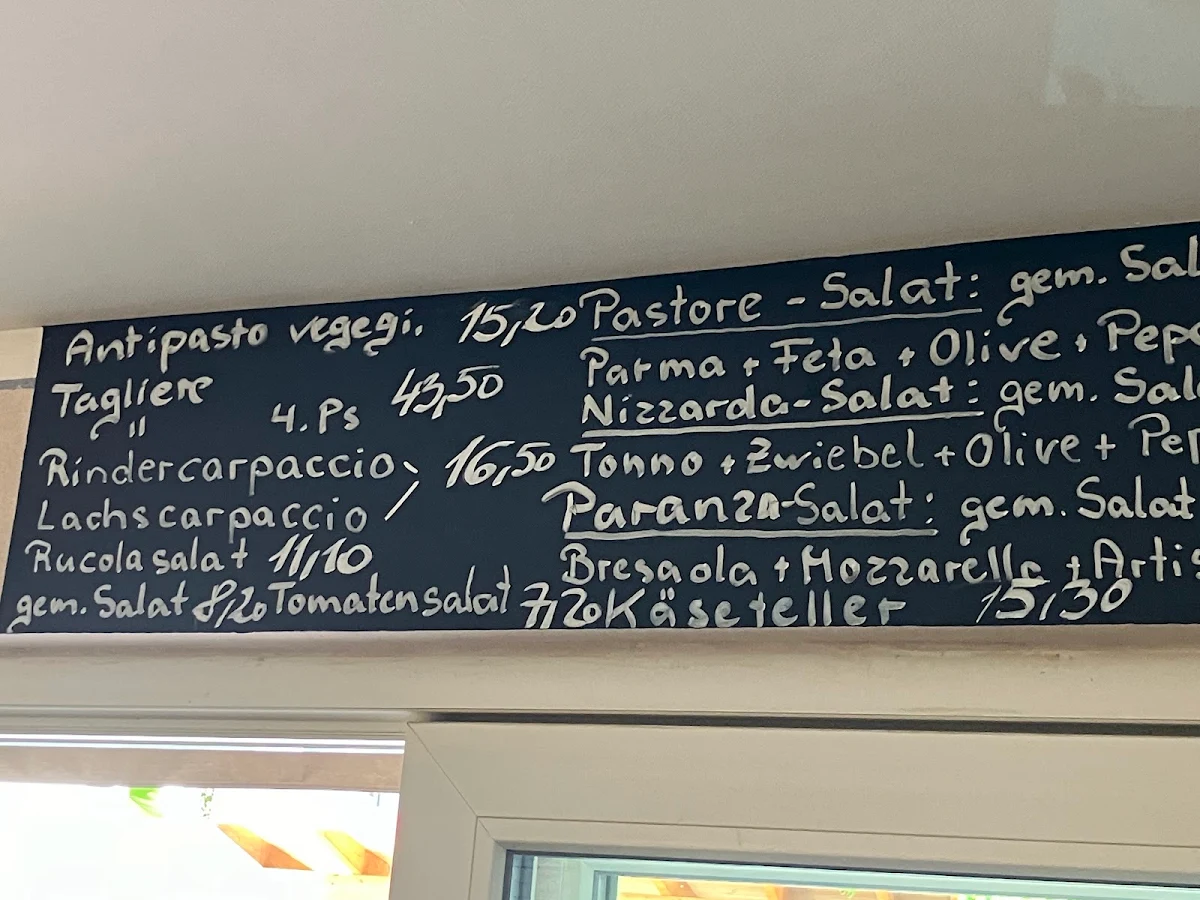 Antipasto vegegi. 15,20
Tagliere
" 4. Ps 43,50
Rindercarpaccio
Lachscarpaccio 16,50
Rucolasalat 11,10
gem. Salat 8,20 Tomatensalat 7,20
Pastore - Salat: gem. Sal
Parma + Feta + Olive + Pepe
Nizzarda-Salat: gem. Sala
Tonno + Zwiebel + Olive + Pep
Paranza-Salat: gem. Salat
Bresaola + Mozzarella + Artis
Käseteller 15,30